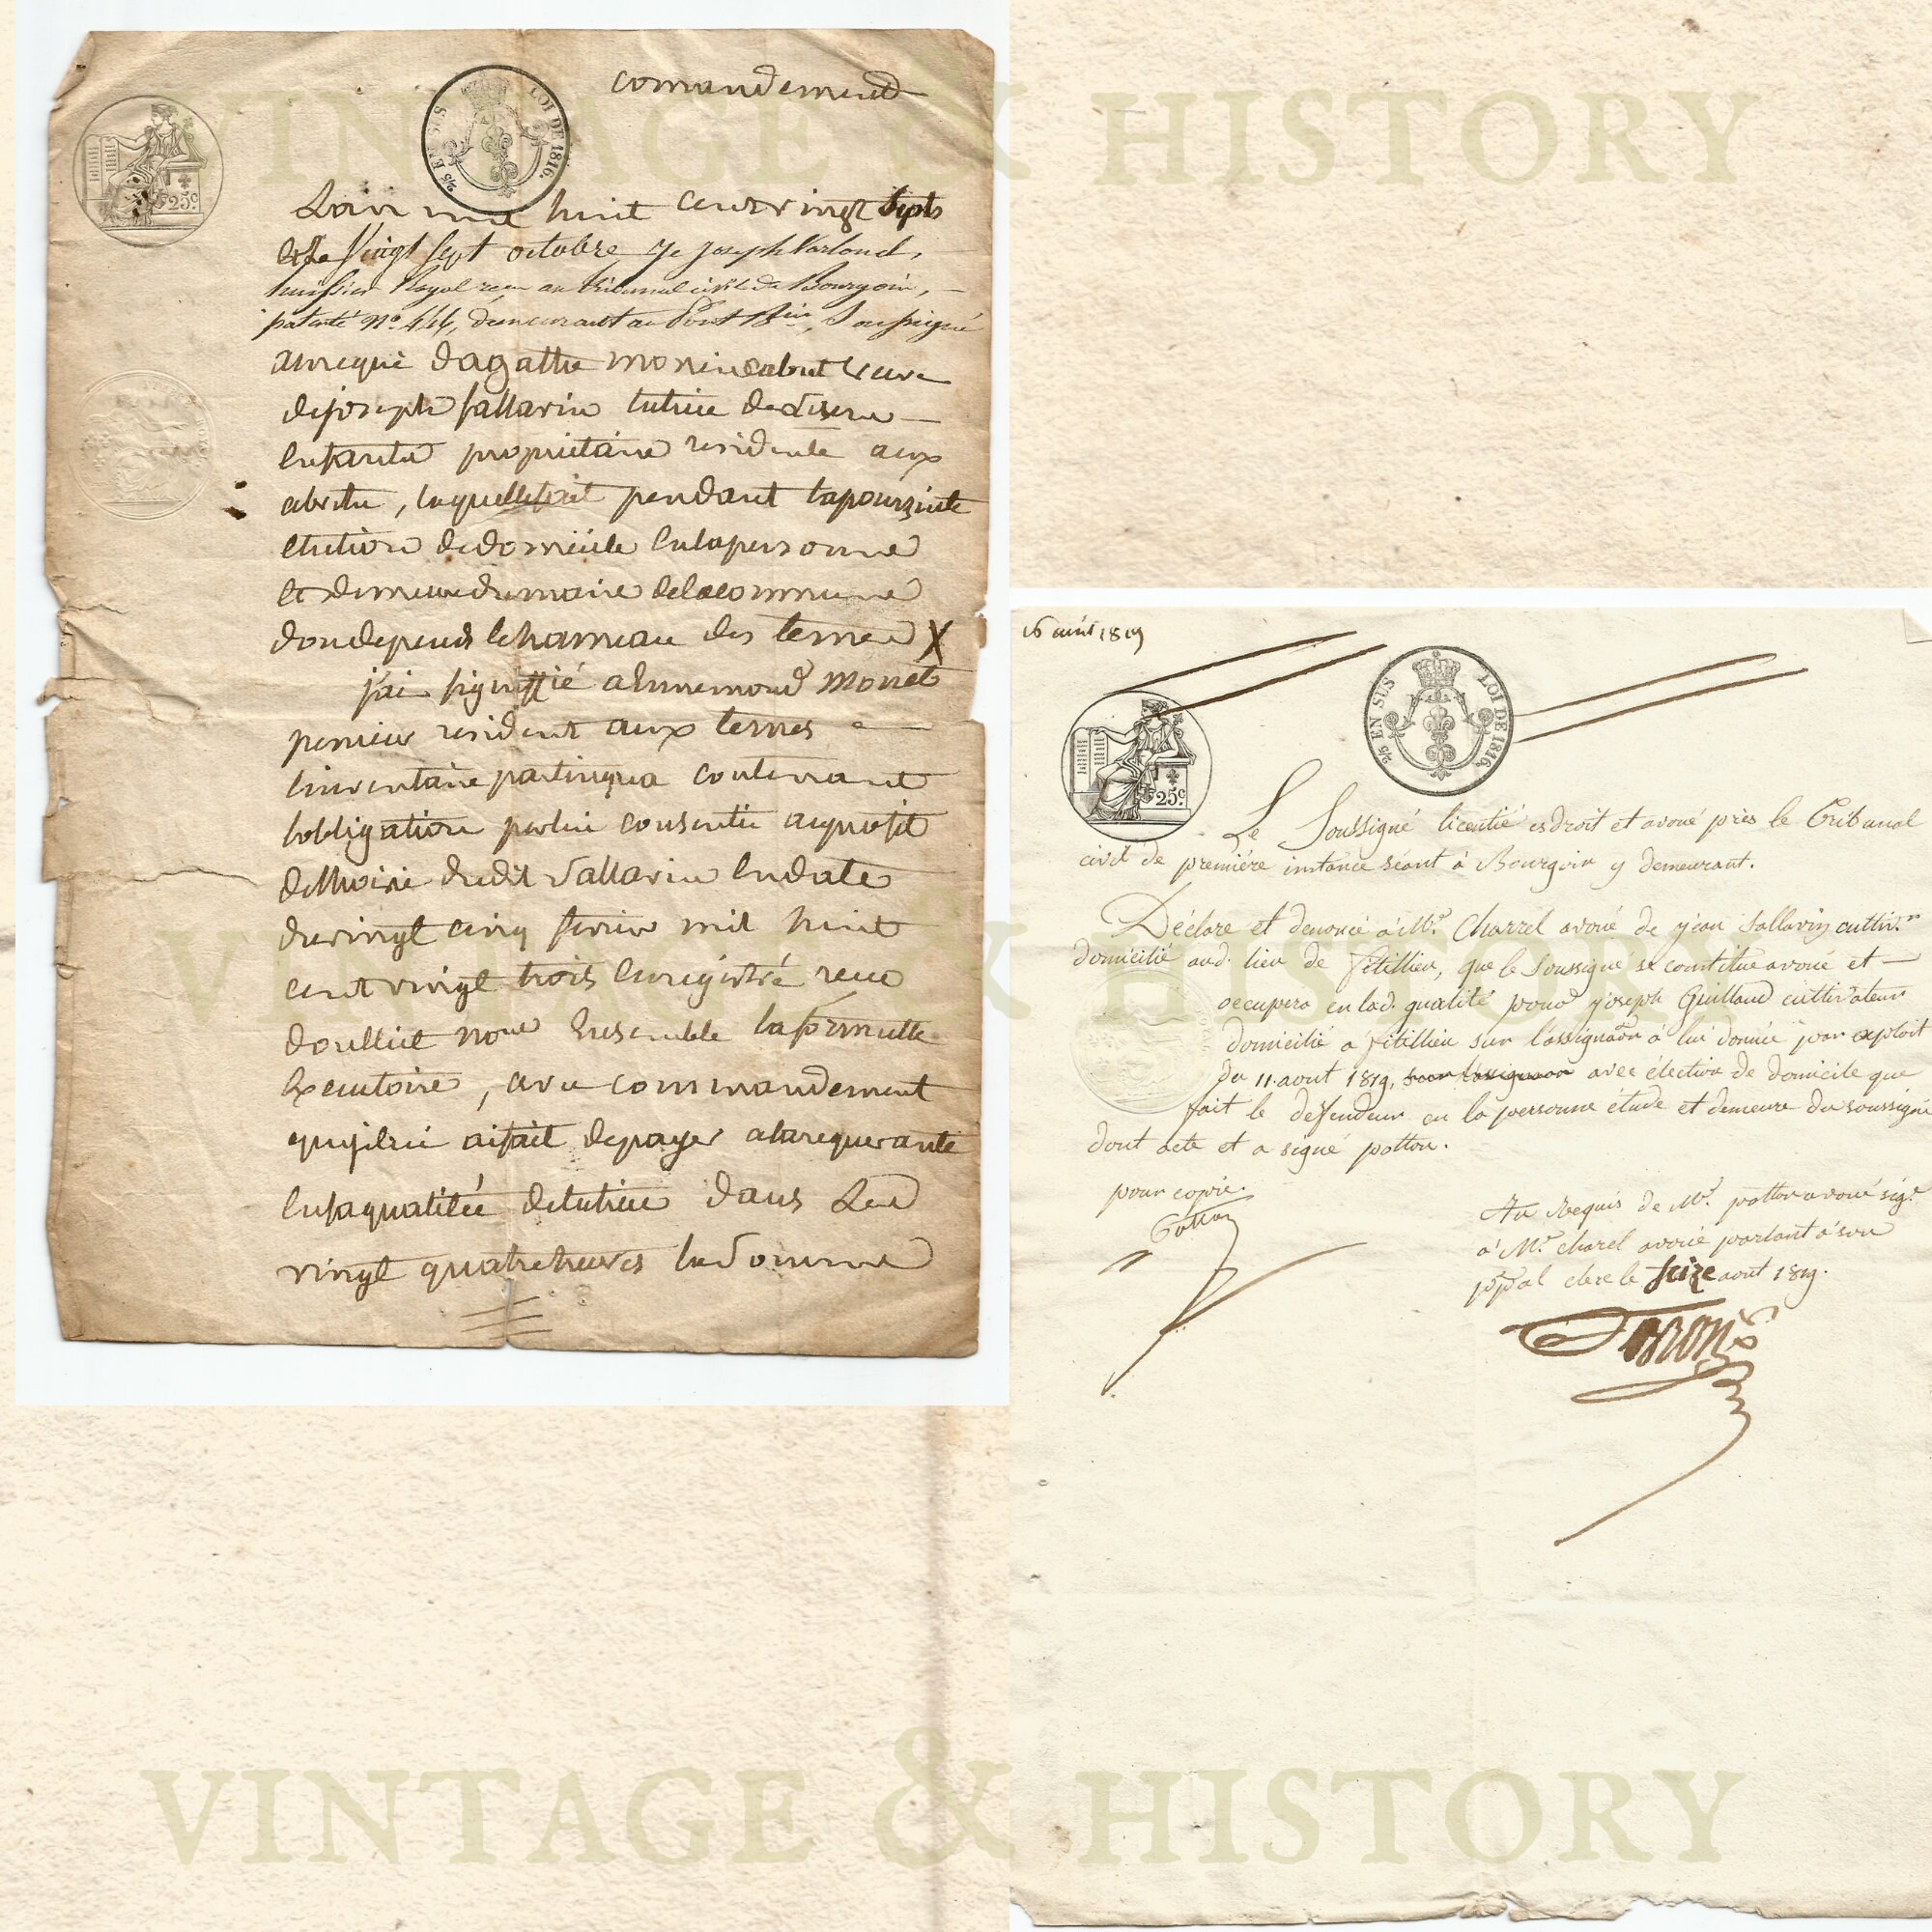 VINTAGE & HISTORY
comandement
25c
2/5 EN SUS LOI DE 1816.
Lan mil huit cent vingt Septs
et le Vingt Sept octobre Je Joseph
huissier Royal reçu au tribunal civil de Bourgoin,
patenté No. demeurant au Pont Soussigné
aurequi dagathe veuve
dejoseph Sallavin tutrice de
Enfants propriétaire residente aux
abrets, laquellefait pendant lapoursuite
Election dedomicile Enlapersonne
et demeure dumaire delacommune
dondepend lehameau des ternes X
jai signiffié a Ennemond Monet
resident aux ternes
contenant
lobligation parlui consentie auprofit
dudit Sallavin Endate
duvingt cinq fevrier mil huit
cent vingt trois Enregistré recu
doullié nore Ensemble laformulle
Executoire, avec commandement
quejelui aifait depayer alarequerante
Ensaqualitée detutrice dans Les
vingt quatreheures la Somme
VINTAGE & HISTORY
16 1819
25c
2/5 EN SUS LOI DE 1816.
Le Soussigné licentié esdroit et avoué près le Tribunal
civil de première instance séant à Bourgoin y demeurant.
Déclare et dénonce à Mr. Charrel avoué de jean Sallavin cultivr.
domicilié aud. lieu de fitillieu, que le Soussigné se constitue avoué et
occupera en lad. qualité pour joseph Guillaud cultivateur
domicilié à fitillieu sur lassignaon à lui donnée par exploit
du 11 aout 1819, avec élection de domicile que
fait le défendeur en la personne étude et demeure du soussigné
dont acte et a signé potton.
pour copie.
Potton
Au requis de Mr. potton avoué sigé
à Mr. charel avoué parlant à son
ppal clerc le Seize aout 1819.
VINTAGE & HISTORY